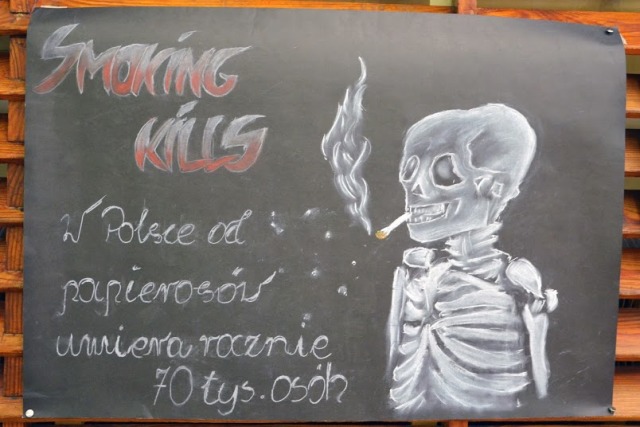 SMOKING
KILLS
W Polsce od
papierosów
umiera rocznie
70 tys. osób